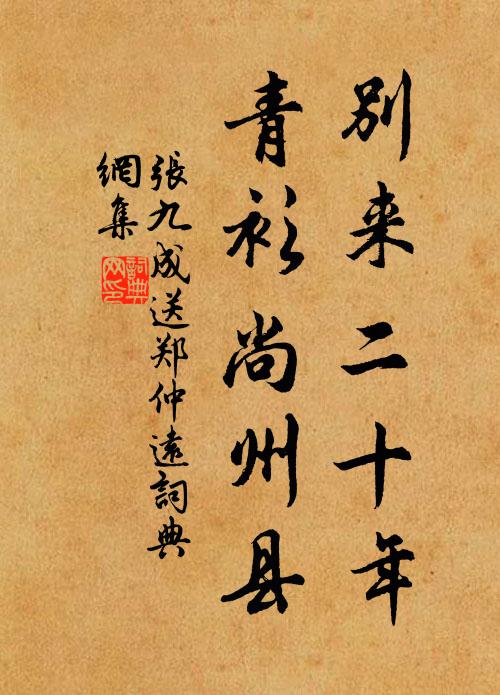 别来二十年
青衫尚州县
張九成送郑仲遠詞典
網集
詞典
网印